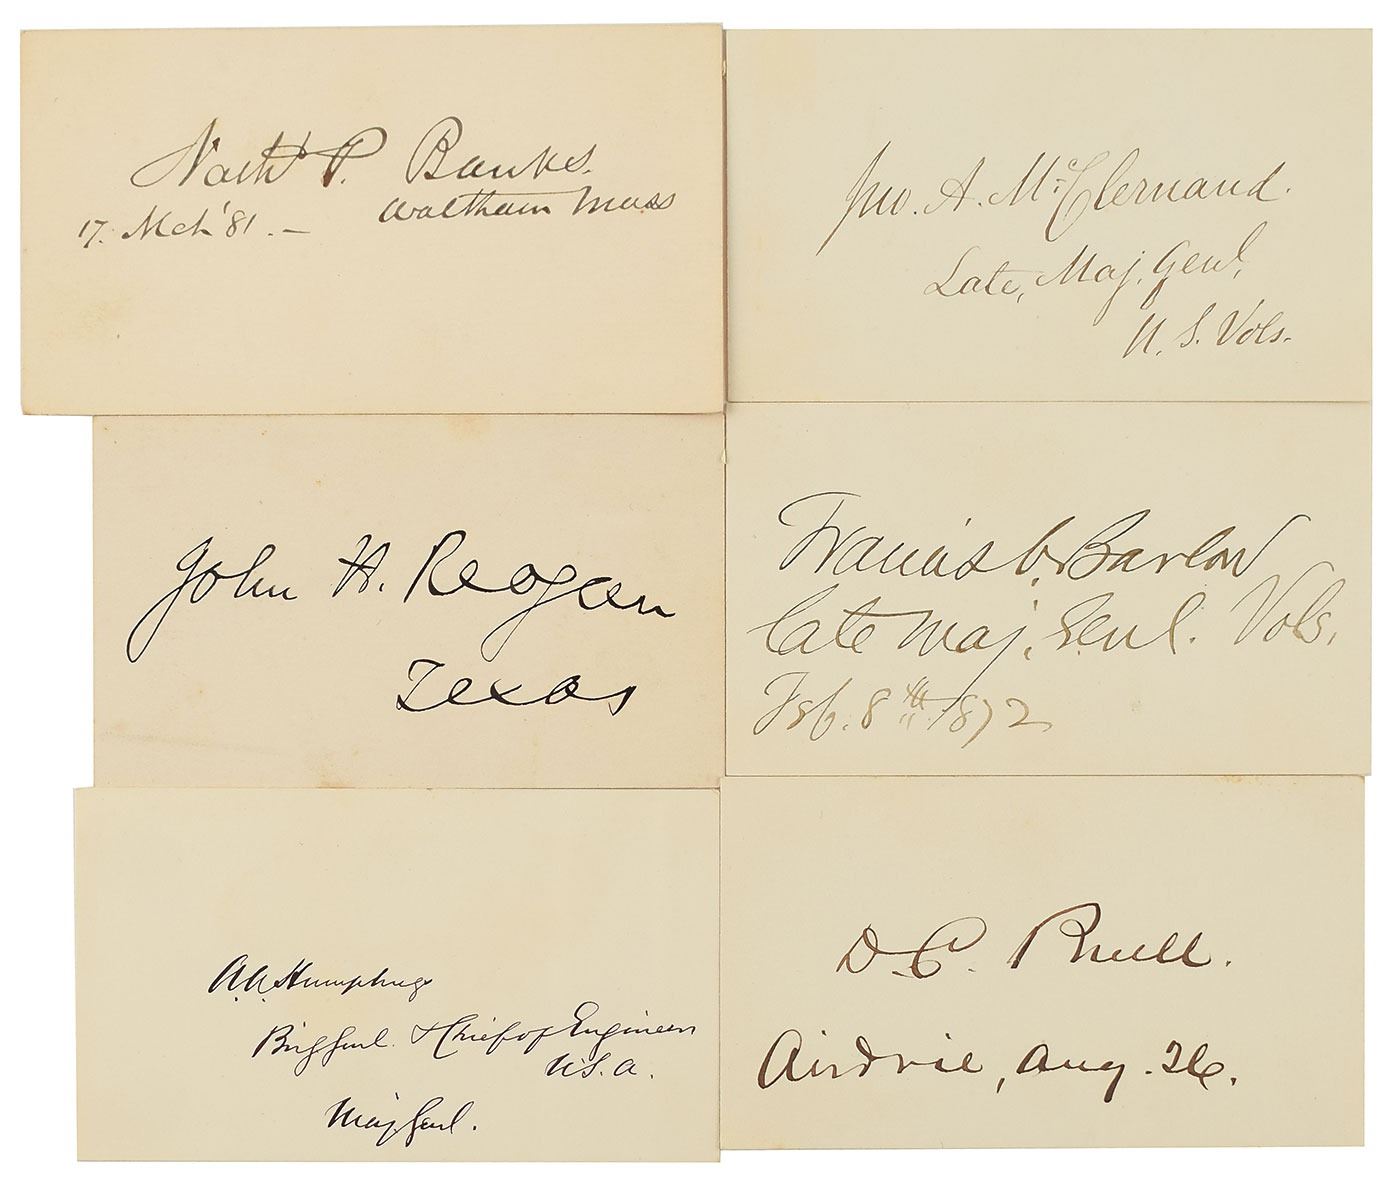 Nathl P. Banks.
Waltham Mass
17. Mch '81. –
Jno. A. McClernand.
Late, Maj. Genl,
U. S. Vols.
John H. Reagan
Texas
Francis C. Barlow
late Maj. Genl. Vols.
Feb. 8th 1872
A. A. Humphreys
Brig Genl. & Chief of Engineers
U.S.A.
Maj. Genl.
D. C. Buell.
Airdrie, Aug. 26.